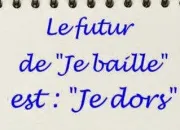 Le futur
de "Je baille"
est : "Je dors"